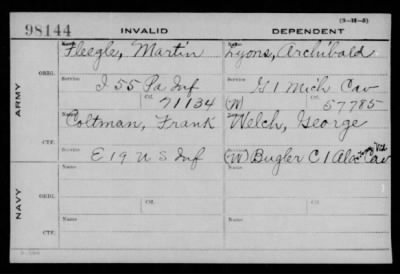 (3-M-5)
98144 INVALID DEPENDENT
Name Fleegle, Martin Lyons, Archibald
ARMY
ORIG. Service I 55 Pa Inf Service G 1 Mich Cav
Ctf. 71134 (W) Ctf. 57785
Coltman, Frank Welch, George
CTF. Service E 19 U S Inf (W) Bugler C 1 Ala Vid Cav
NAVY
Name Name
ORIG. Service Ctf. Service Ctf.
Name Name
CTF. Service Service